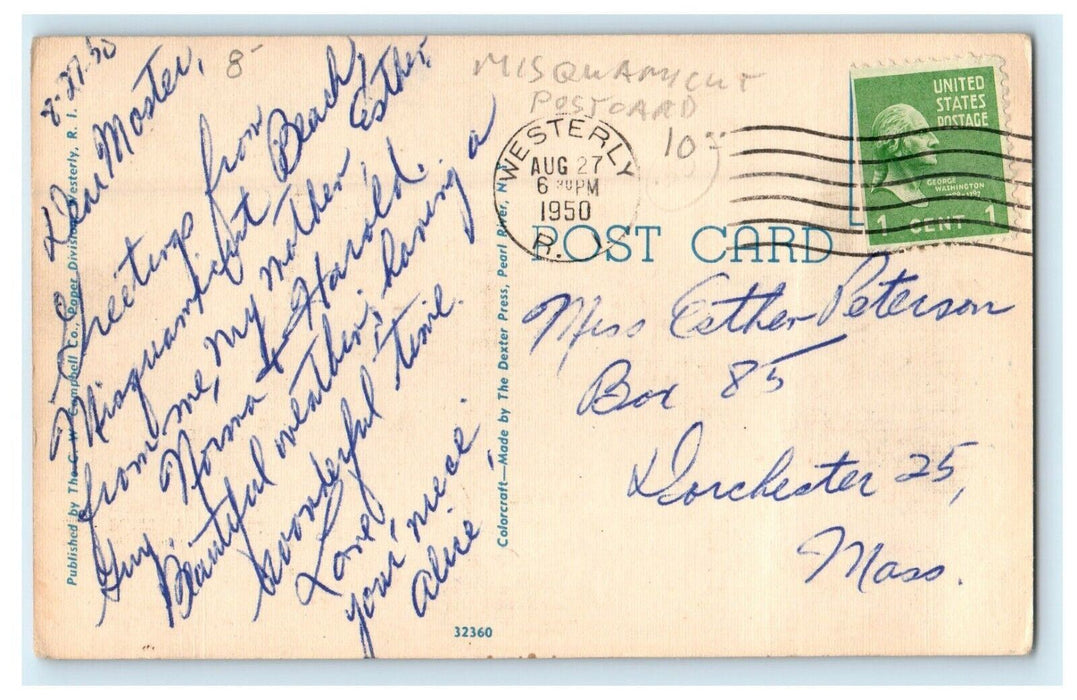 8-27-50
8-
Dear Moster,
Greetings from
Misquamicut Beach
from me, my mother, Esther,
Guy, Norma & Harold.
Beautiful weather, having a
wonderful time.
Love,
your niece,
Alice
Published by The C. W. Campbell Co., Paper Division, Westerly, R. I.
Colorcraft—Made by The Dexter Press, Pearl River, N.Y.
32360
MISQUAMICUT
POSTCARD
10
WESTERLY
AUG 27
6 30 PM
1950
R. I.
UNITED
STATES
POSTAGE
GEORGE
WASHINGTON
1789-1797
1 CENT 1
POST CARD
Miss Esther Peterson
Box 85
Dorchester 25,
Mass.